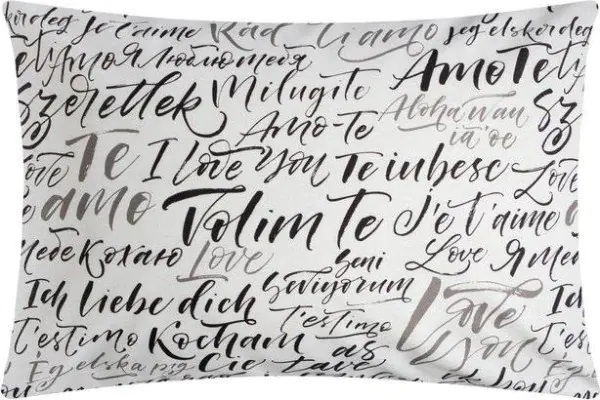 jeg elsker deg je t'aime Rád Ti amo jeg elsker deg
Te Amo Я люблю тебя Amo Te
Szeretlek Milugite Aloha Wau
Amo-Te ia 'oe
Te I love You Te iubesc Love
amo Volim Te J'e t'aime
тебе Кохаю Love Seni Love Я
Ich liebe dich Seviyorum Love Ich
t'estimo Kocham t'estimo You t'esti
Ég elska þig Cię